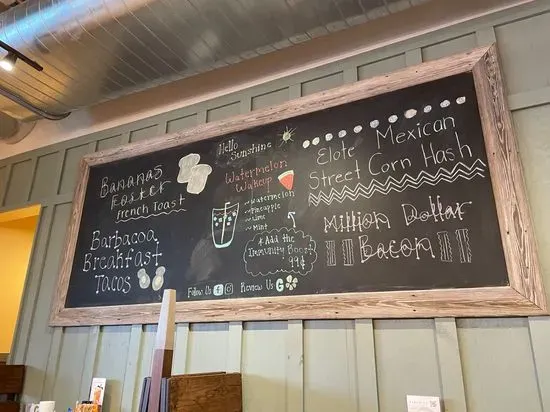 Bananas
Foster
French Toast
Barbacoa
Breakfast
Tacos
Hello
Sunshine
Watermelon
Wakeup
~ Watermelon
~ Pineapple
~ Lime
~ Mint
* Add the
Immunity Boost
99¢
Follow Us f
Review Us G
Elote Mexican
Street Corn Hash
Million Dollar
Bacon